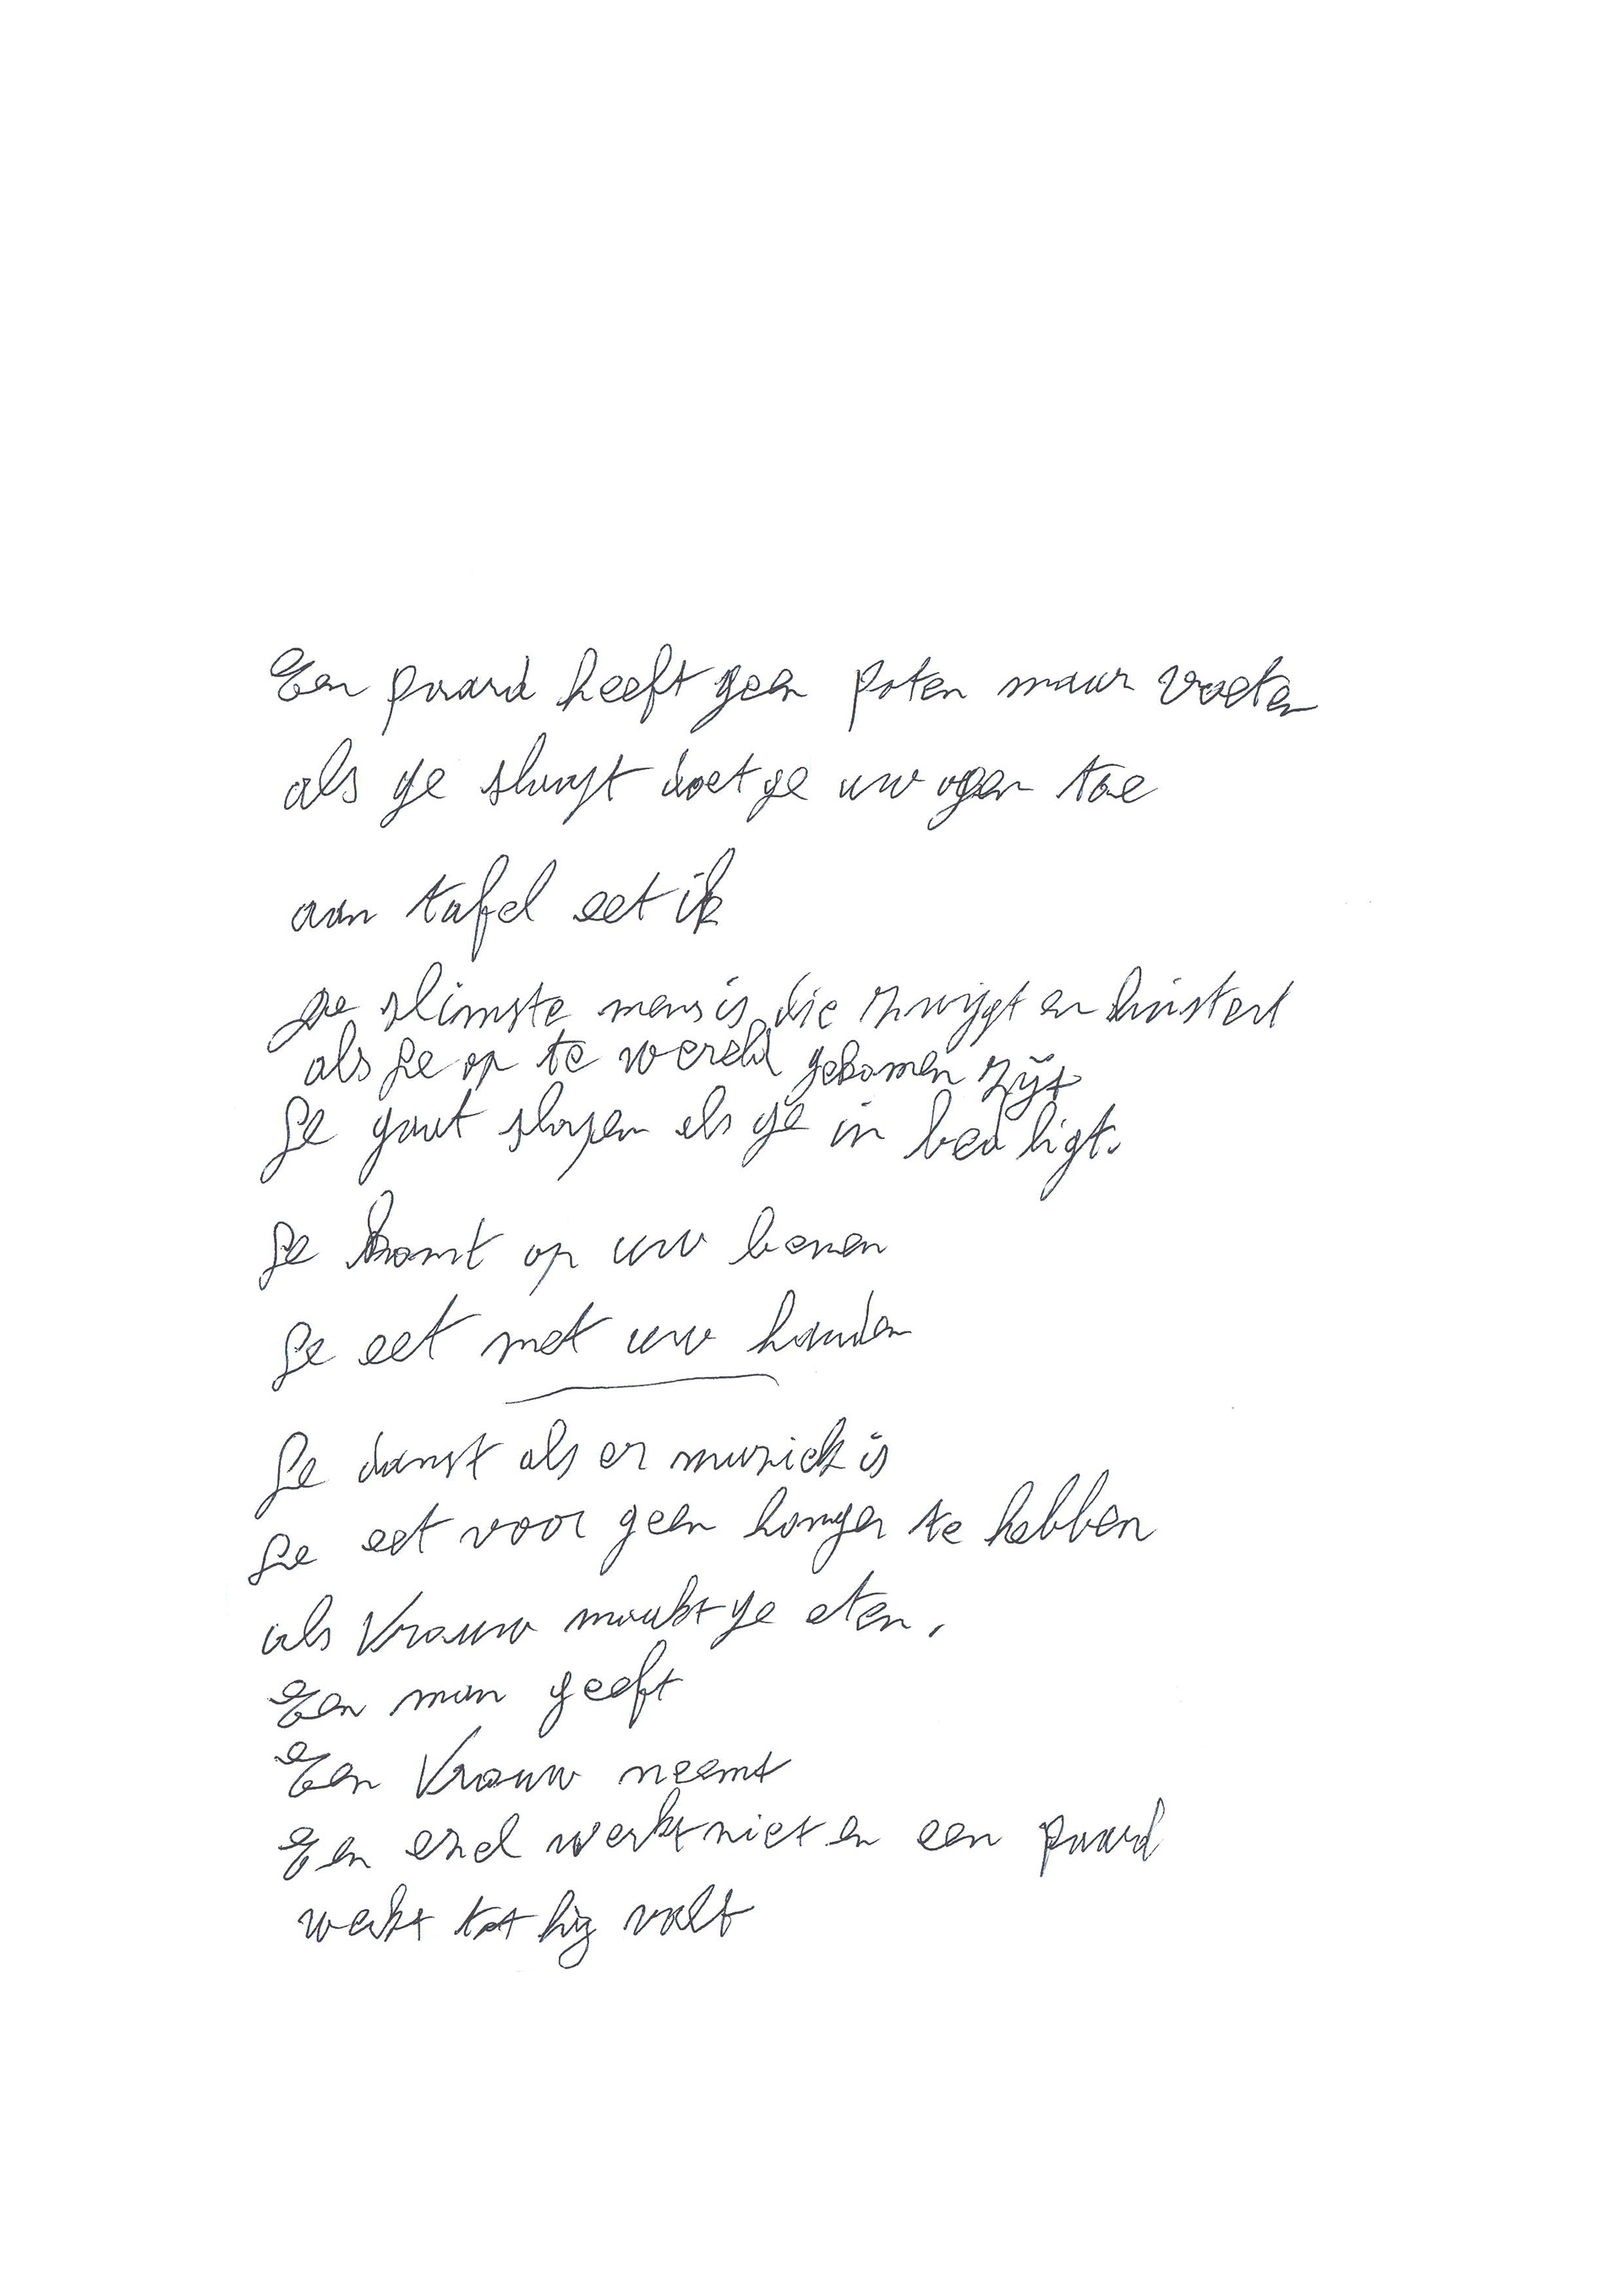 Een paard heeft geen poten maar voeten
als ge slaapt doet ge uw ogen toe
aan tafel eet ik
De slimste mens is die zwijgt en luistert
als Ge op te wereld gekomen zijt
Ge gaat slapen als ge in bed ligt.
Ge komt op uw benen
Ge eet met uw handen
Ge danst als er muziek is
Ge eet voor geen honger te hebben
als Vrouw maakt ge eten,
Een man geeft
Een Vrouw neemt
Een ezel werkt niet en een paard
werkt tot hij valt